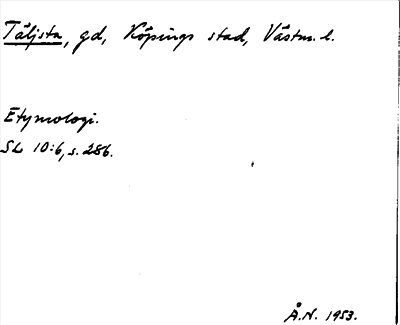 Täljsta, gd, Köpings stad, Västm. l.
Etymologi.
SL 10:6, s. 286.
Å.N. 1953.